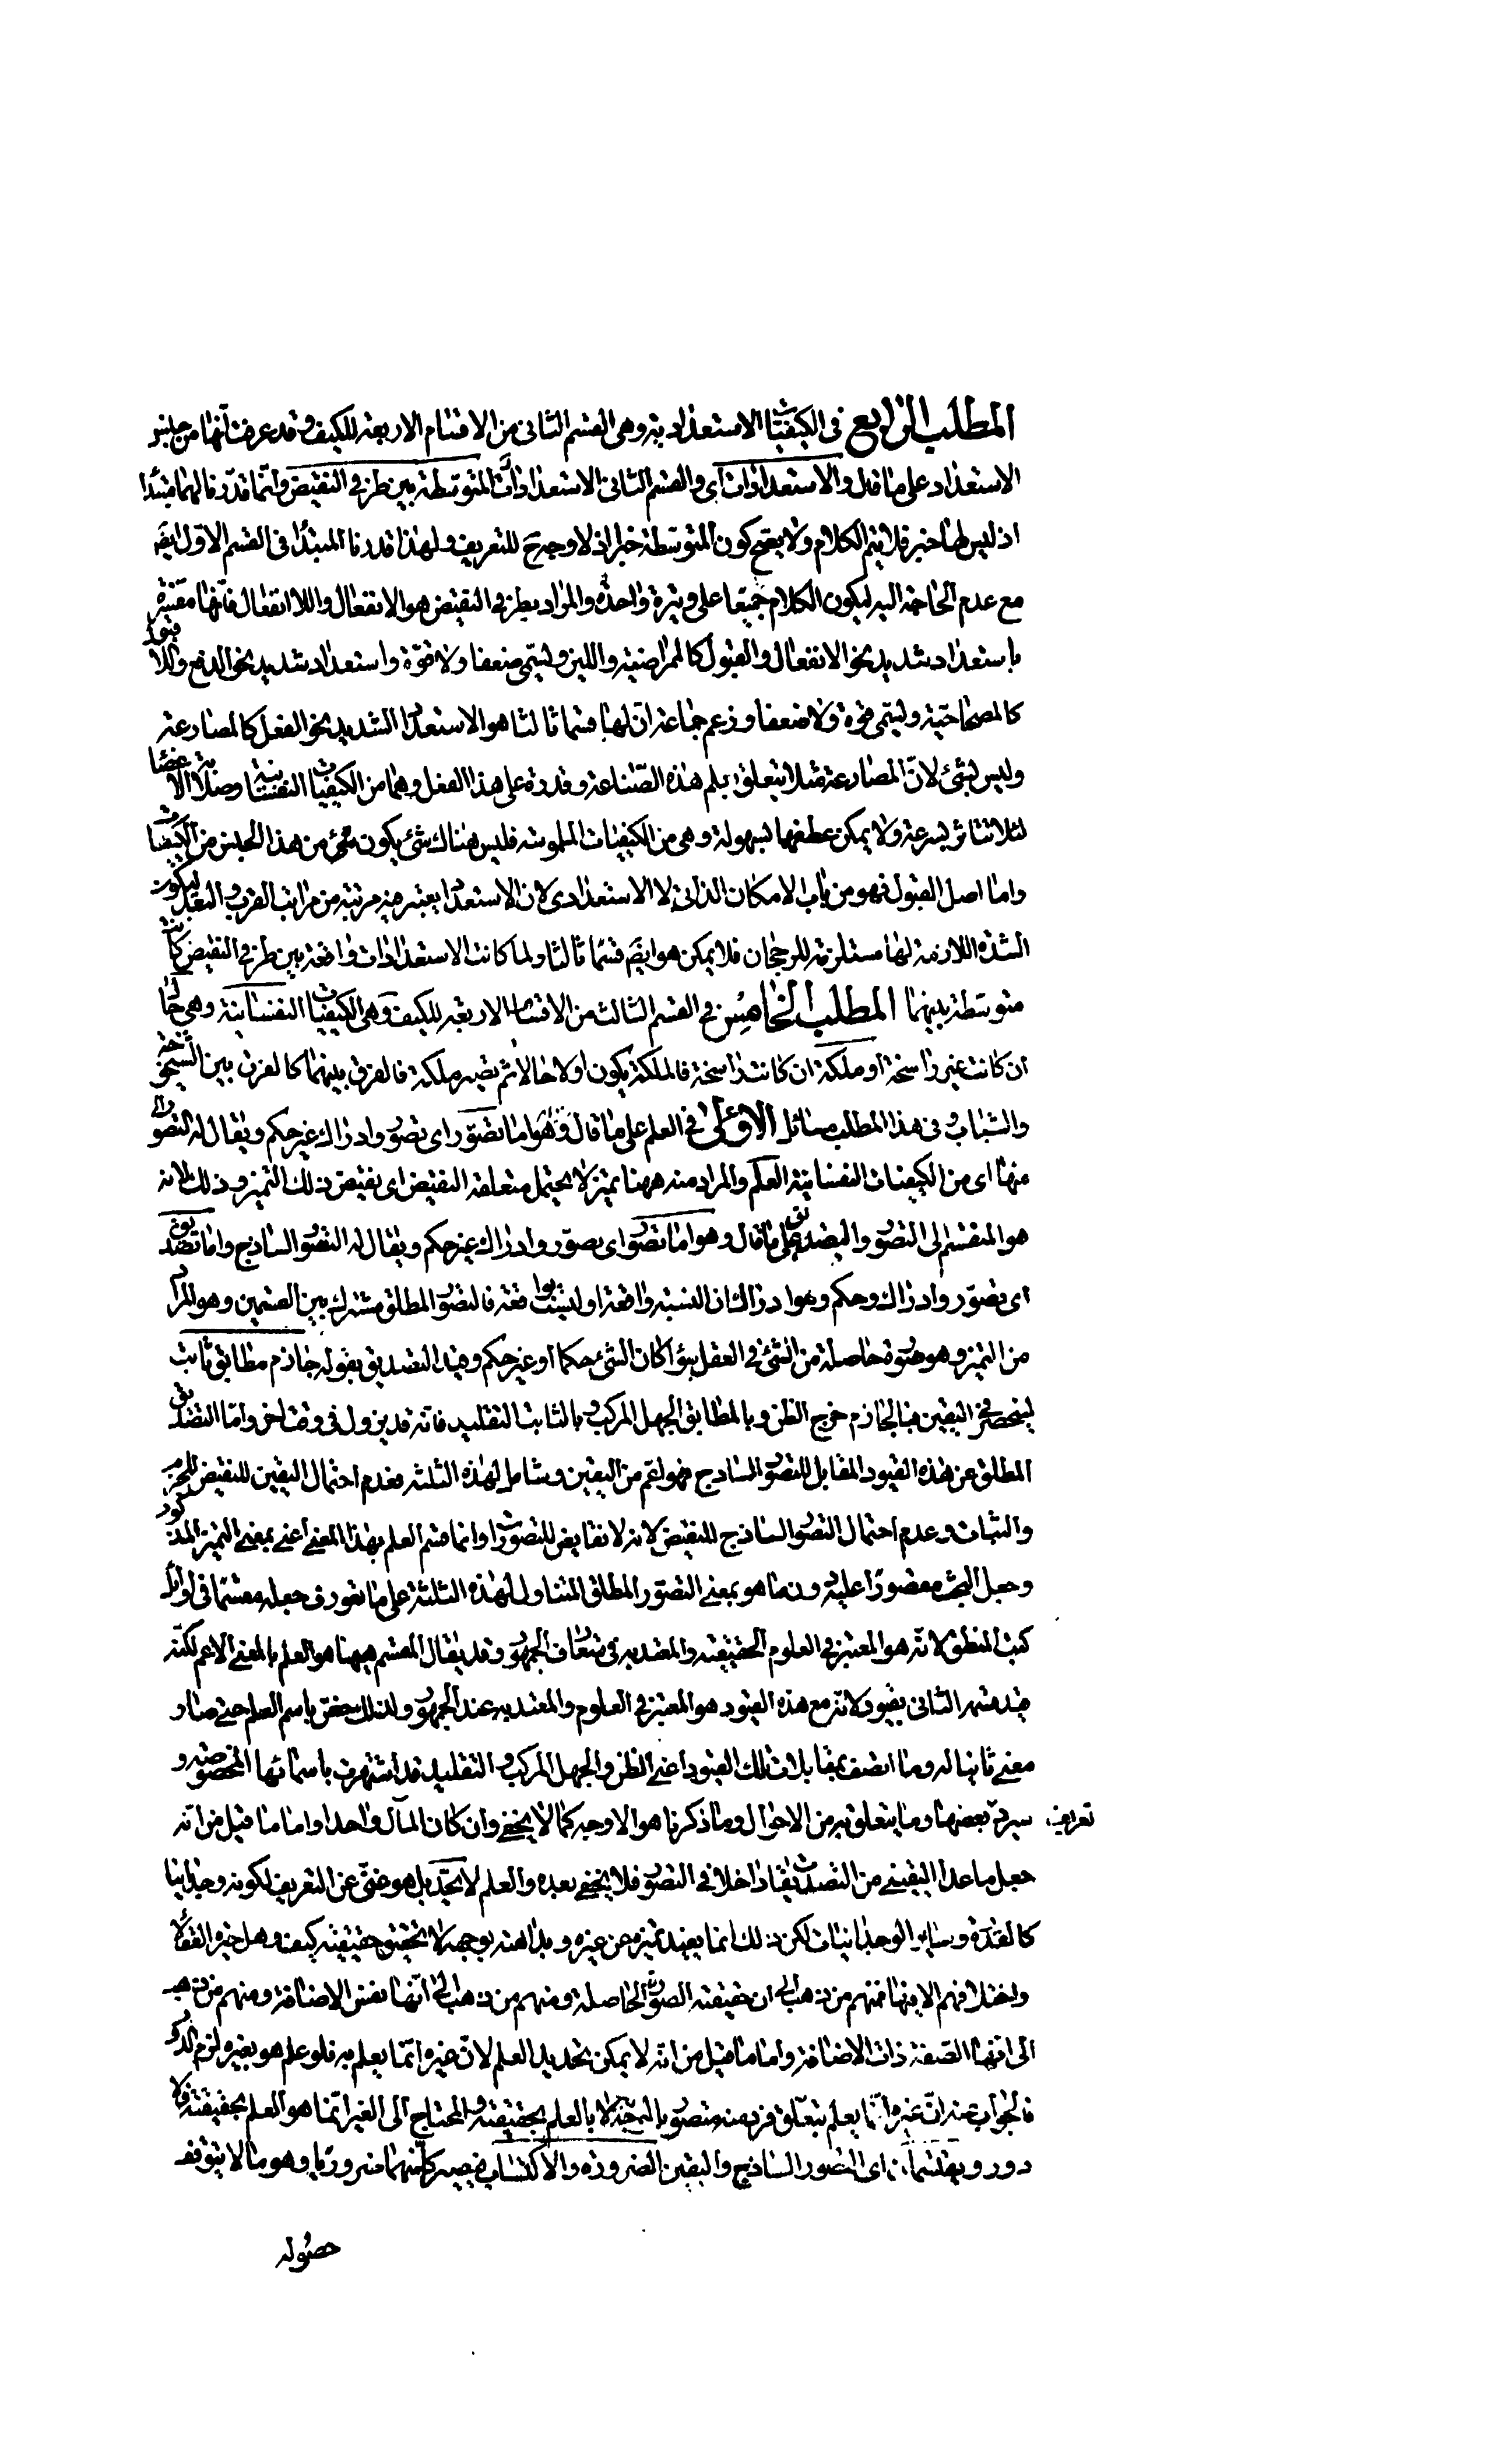 المطلب الرابع فى الكيفيات الاستعدادية وهى القسم الثانى من الاقسام الاربعة للكيف وقد عرفت انها من جنس
الاستعداد على ما قال والاستعدادات اى والقسم الثانى الاستعدادات المتوسطة بين طرفى النقيض وانما قدرنا لهما مبتدا
اذ ليس لها خبر فلا يتم الكلام ولا يصح كون المتوسطة خبرا اذ لا وجه ح للتعريف ولهذا قدرنا المبتدا فى القسم الاول ايضا
مع عدم الحاجة اليه ليكون الكلام جميعا على وتيرة واحدة والمراد بطرفى النقيض هو الانفعال واللا انفعال فانها مفسرة
باستعداد شديد نحو الانفعال والقبول كالممراضية واللين وليتمى ضعفا ولا قوة واستعداد شديد نحو الدفع واللا قبول
كالمصحاحية وليتمى قوة ولا ضعفا وزعم جماعة ان لها قسما ثالثا هو الاستعداد الشديد نحو الفعل كالمصارعة
وليس بشئ لان المصارعة مثلا يتعلق بعلم هذه الصناعة وقدرة على هذا الفعل وهما من الكيفيات النفسانية وصلابة الاعضا
لئلا تتاثر بسرعة ولا يمكن عطفها بسهولة وهى من الكيفيات الملموسة فليس هناك شئ يكون من هذا الجنس من الكيفيات
واما اصل القبول فهو من باب الامكان الذاتى لا الاستعدادى لان الاستعداد يعتبر فيه مرتبة من مراتب القرب والبعد ليكون
الشدة اللازمة لها مستلزمة للرجحان فلا يمكن هو ايضا قسما ثالثا ولما كانت الاستعدادات واقعة بين طرفى النقيض كانت
متوسطة بينهما المطلب الخامس فى القسم الثالث من الاقسام الاربعة للكيف وهى الكيفيات النفسانية وهى حال
ان كانت غير راسخة او ملكة ان كانت راسخة فالملكة يكون اولا حالا ثم تصير ملكة فالفرق بينهما كالفرق بين الشيخوخة
والشباب وفى هذا المطلب مسائل الاولى فى العلم على ما قال وهو اما تصور اى تصور وادراك غير حكم ويقال له التصور
منها اى من الكيفيات النفسانية العلم والمراد منه ههنا تميز لا يحتمل متعلقه النقيض اى نقيض ذلك التميز وذلك لانه
هو المنقسم الى التصور والتصديق على ما قال وهو اما تصور اى تصور وادراك غير حكم ويقال له التصور الساذج واما تصديق
اى تصور وادراك وحكم وهو ادراك ان النسبة واقعة او ليست بواقعة فالتصور المطلق مشترك بين القسمين وهو المراد
من التميز وهو صورة حاصلة من الشئ فى العقل سواء كان الشئ حكما او غير حكم وقيد التصديق بقوله جازم مطابق ثابت
لينحصر فى اليقين فبالجازم خرج الظن وبالمطابق الجهل المركب وبالثابت التقليد فانه قد يزول فى وقت اخر واما التصديق
المطلق عن هذه القيود المقابل للتصور الساذج فهو اعم من اليقين وشامل لهذه الثلثة فعدم احتمال اليقين للنقيض للجزم
والثبات وعدم احتمال التصور الساذج للنقيض لانه لا نقايض للتصورات وانما قسم العلم بهذا المعنى اعنى بمعنى التميز المذكور
وجعل البحث مقصورا عليه دون ما هو بمعنى التصور المطلق المتناول لهذه الثلثة على ما تعورف جعله مقسما فى اوائل
كتب المنطق لانه هو المعتبر فى العلوم الحقيقية والمعتد به فى متعارف الجمهور وقد يقال المقسم ههنا هو العلم بالمعنى الاعم لكنه
قيد قسمه الثانى بقيود لانه مع هذه القيود هو المعتبر فى العلوم والمعتد به عند الجمهور ولذلك خص باسم العلم حتى صار
معنى ثانيا له وما اتصف بمقابلات تلك القيود اعنى الظن والجهل المركب والتقليد قد اشتهرت باسمائها المخصوصة و
تعريف سيرد بعضها وما يتعلق به من الاحوال وما ذكرنا هو الاوجه كما لا يخفى وان كان المآل واحدا واما ما قيل من انه
جعل ما عدا اليقينى من التصديقات داخلا فى التصور فلا يخفى بعده والعلم لا يحد بل هو غنى عن التعريف لكونه وجدانيا
كالقدرة وساير الوجدانيات لكن ذلك انما يفيد تميزه عن غيره وبداهته بوجه لا تحقيق حقيقته كيف وهل خير العقلاء
واختلافهم الا فيها فمنهم من ذهب الى ان حقيقته الصورة الحاصلة ومنهم من ذهب الى انها نفس الاضافة ومنهم من ذهب
الى انها الصفة ذات الاضافة واما ما قيل من انه لا يمكن تحديد العلم لان غيره انما يعلم به فلو علم هو بغيره لزم الدور
فالجواب عنه ان غيره انما يعلم بتعلق فرد منه متصور بالوجه لا بالعلم بحقيقته والمحتاج الى الغير انما هو العلم بحقيقته فلا
دور ويقتسمان اى التصور الساذج واليقين الضرورة والاكتساب فيصير كل منهما ضروريا وهو ما لا يتوقف
حصوله